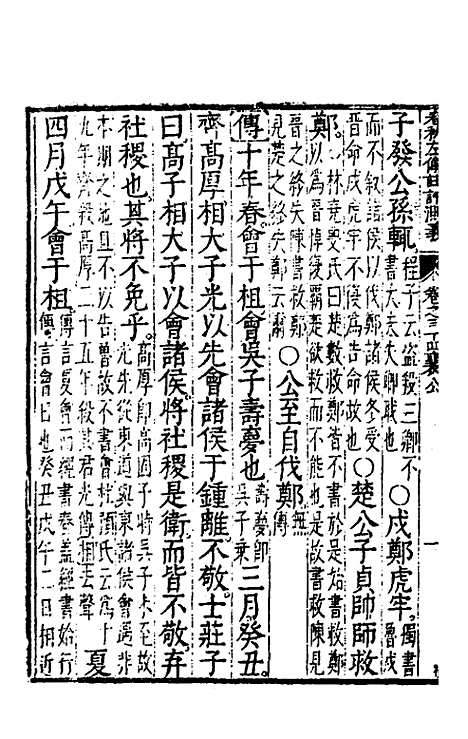 春秋左傳註評測義 卷之三十四 襄公 一
子發公孫輒程子云盜殺三卿不書大夫失卿職也○戍鄭虎牢獨書魯戍
而不敘諸侯以伐鄭諸侯各受晉命戍虎牢不復爲告命故也○楚公子貞帥師救
鄭林堯叟氏曰楚數救鄭皆不書於是始書救鄭以爲晉悼復楚欲救而不能也是故書救陳見
晉之終失陳書救鄭見楚之終失鄭云爾○公至自伐鄭無傳
傳十年春會于柤會吳子壽夢也壽夢即吳子乘三月癸丑
齊高厚相大子光以先會諸侯于鍾離不敬士莊子
曰高子相大子以會諸侯將社稷是衛而皆不敬棄
社稷也其將不免乎高厚即高固子時吳子未至故光先從東道與東諸侯會遇非
本期之地且不以告魯故不書會杜預氏云爲十九年齊殺高厚二十五年殺其君光傳相去聲夏
四月戊午會于柤傳言夏會而經書春蓋經書始行傳言會日也癸丑戊午二日相近